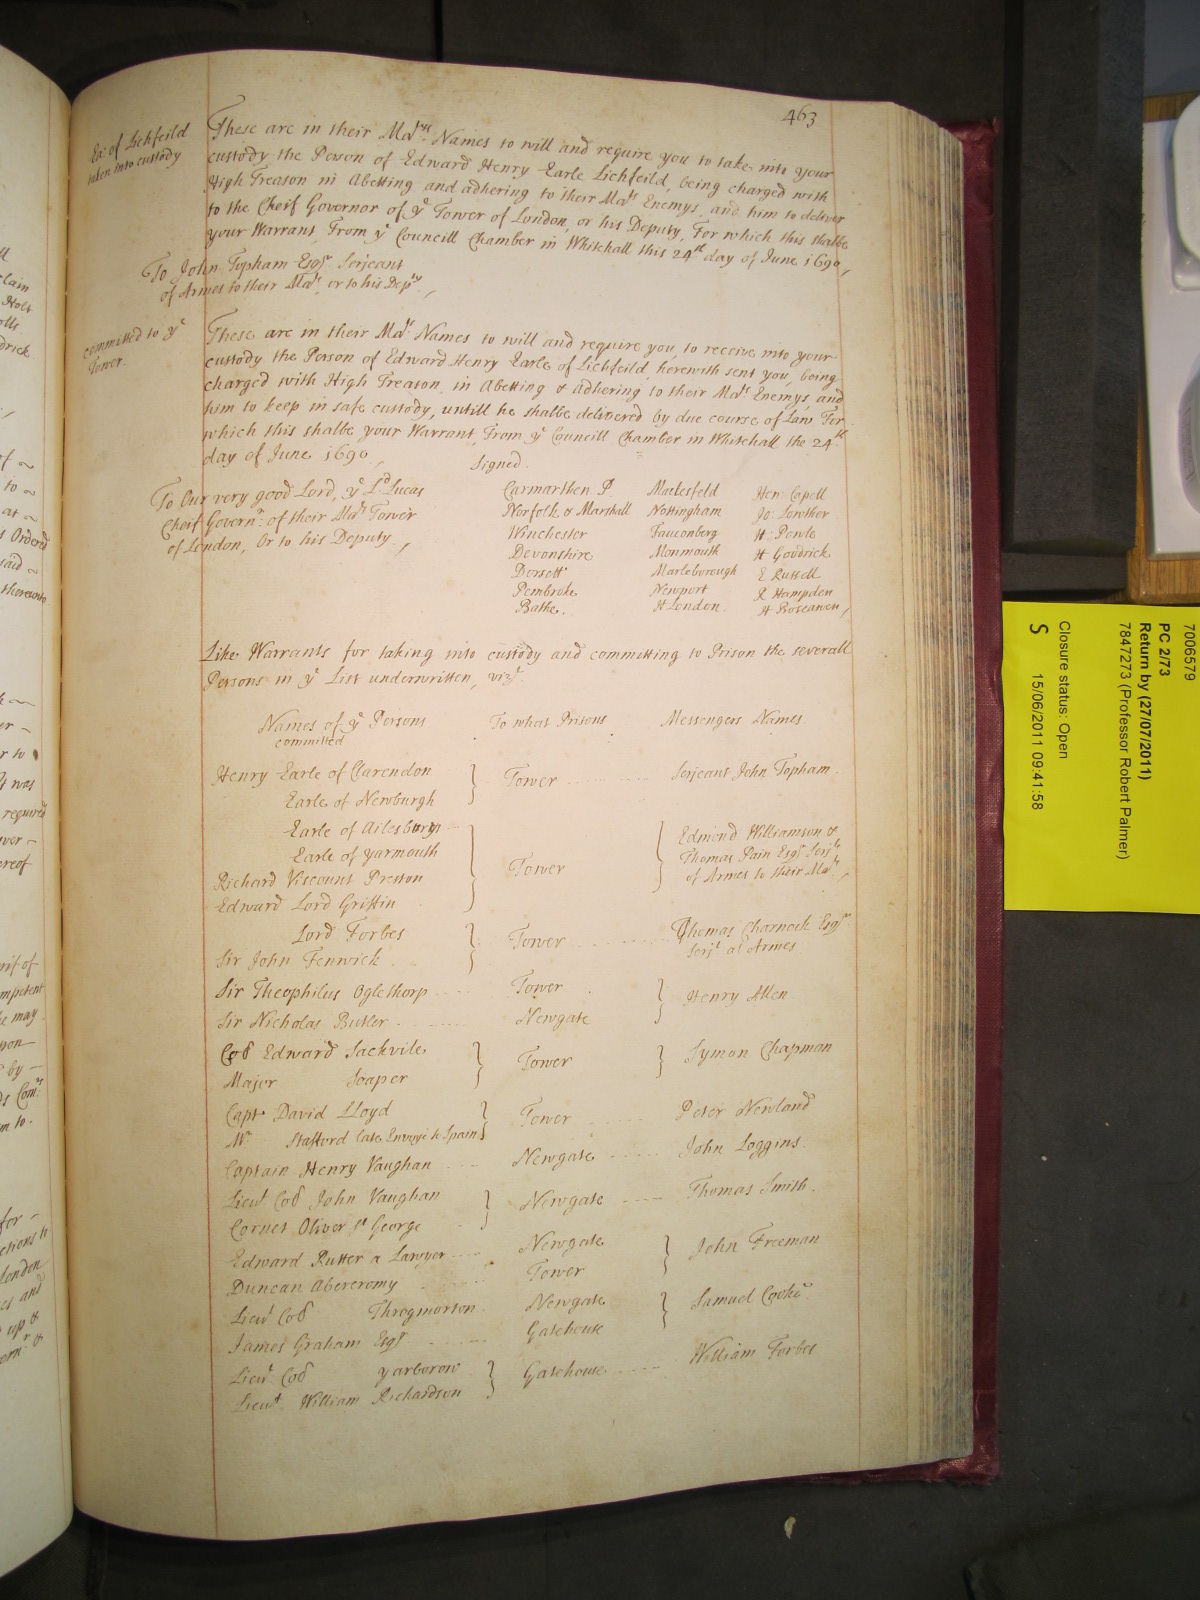 463
Ea: of Lichfeild
taken into custody
These are in their Ma:tys Names to will and require you to take into your
custody the Person of Edward Henry Earle Lichfeild, being charged with
High Treason in Abetting and adhering to their Ma:ts Enemys, and him to deliver
to the Cheif Governor of ye Tower of London, or his Deputy, For which this shalbe
your Warrant, From ye Councill Chamber in Whitehall this 24th day of June 1690,
To John Topham Esqr. Serjeant
of Armes to their Mats. or to his Depty,
committed to ye
Tower.
These are in their Mats. Names to will and require you, to receive into your
custody the Person of Edward Henry Earle of Lichfeild, herewith sent you, being
charged with High Treason, in Abetting & adhering to their Mats. Enemys and
him to keep in safe custody, untill he shalbe delivered by due course of Law For
which this shalbe your Warrant, From ye Councill Chamber in Whitehall the 24th
day of June 1690,
Signed
To Our very good Lord, ye Ld Lucas
Cheif Governr. of their Mats Tower
of London, Or to his Deputy,
Carmarthen P Maclesfeld Hen: Capell
Norfolk & Marshall Nottingham Jo: Lowther
Winchester Fauconberg H: Powle
Devonshire Monmouth H Goodrick
Dorsett Marleborough E Russell
Pembroke Newport R Hampden
Bathe. H London. H Boscawen,
Like Warrants for taking into custody and committing to Prison the severall
Persons in ye List underwritten, vizt.
Names of ye Persons To what Prisons Messengers Names
committed
Henry Earle of Clarendon } Tower Serjeant John Topham
Earle of Newburgh
Earle of Ailesbury
Earle of Yarmouth } Tower } Edmond Williamson &
Richard Viscount Preston Thomas Pain Esqr Serjts
Edward Lord Griffin of Armes to their Mats,
Lord Forbes } Tower Thomas Charnock Esqr
Sir John Fenwick Serjt at Armes
Sir Theophilus Oglethorp Tower } Henry Allen
Sir Nicholas Butler Newgate
Coll Edward Sackvile } Tower } Symon Chapman
Major Soaper
Capt David Lloyd } Tower Peter Newland
Mr Stafford late Envoy to Spain
Captain Henry Vaughan Newgate John Loggins
Lieut Coll John Vaughan } Newgate Thomas Smith
Cornet Oliver St George
Edward Rutter a Lawyer Newgate } John Freeman
Duncan Abercromy Tower
Lieut Coll Throgmorton Newgate } Samuel Cooke
James Graham Esqr Gatehouse
Lieut Coll Yarborow } Gatehouse William Forbes
Lieut. William Richardson
7006579
PC 2/73
Return by (27/07/2011)
7847273 (Professor Robert Palmer)
Closure status: Open
S 15/06/2011 09:41:58